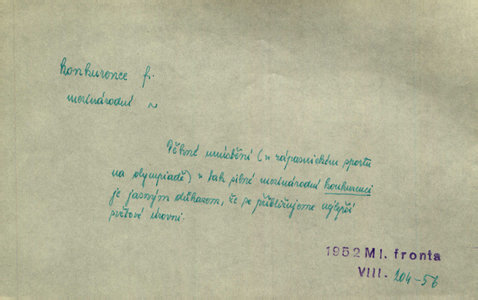 konkurence f.
mezinárodní ~
Pěkné umístění (v zápasnickém sportu
na olympiadě) v tak silné mezinárodní konkurenci
je jasným důkazem, že se přibližujeme nejvyšší
světové úrovni.
1952 Ml. fronta
VIII. 204-56